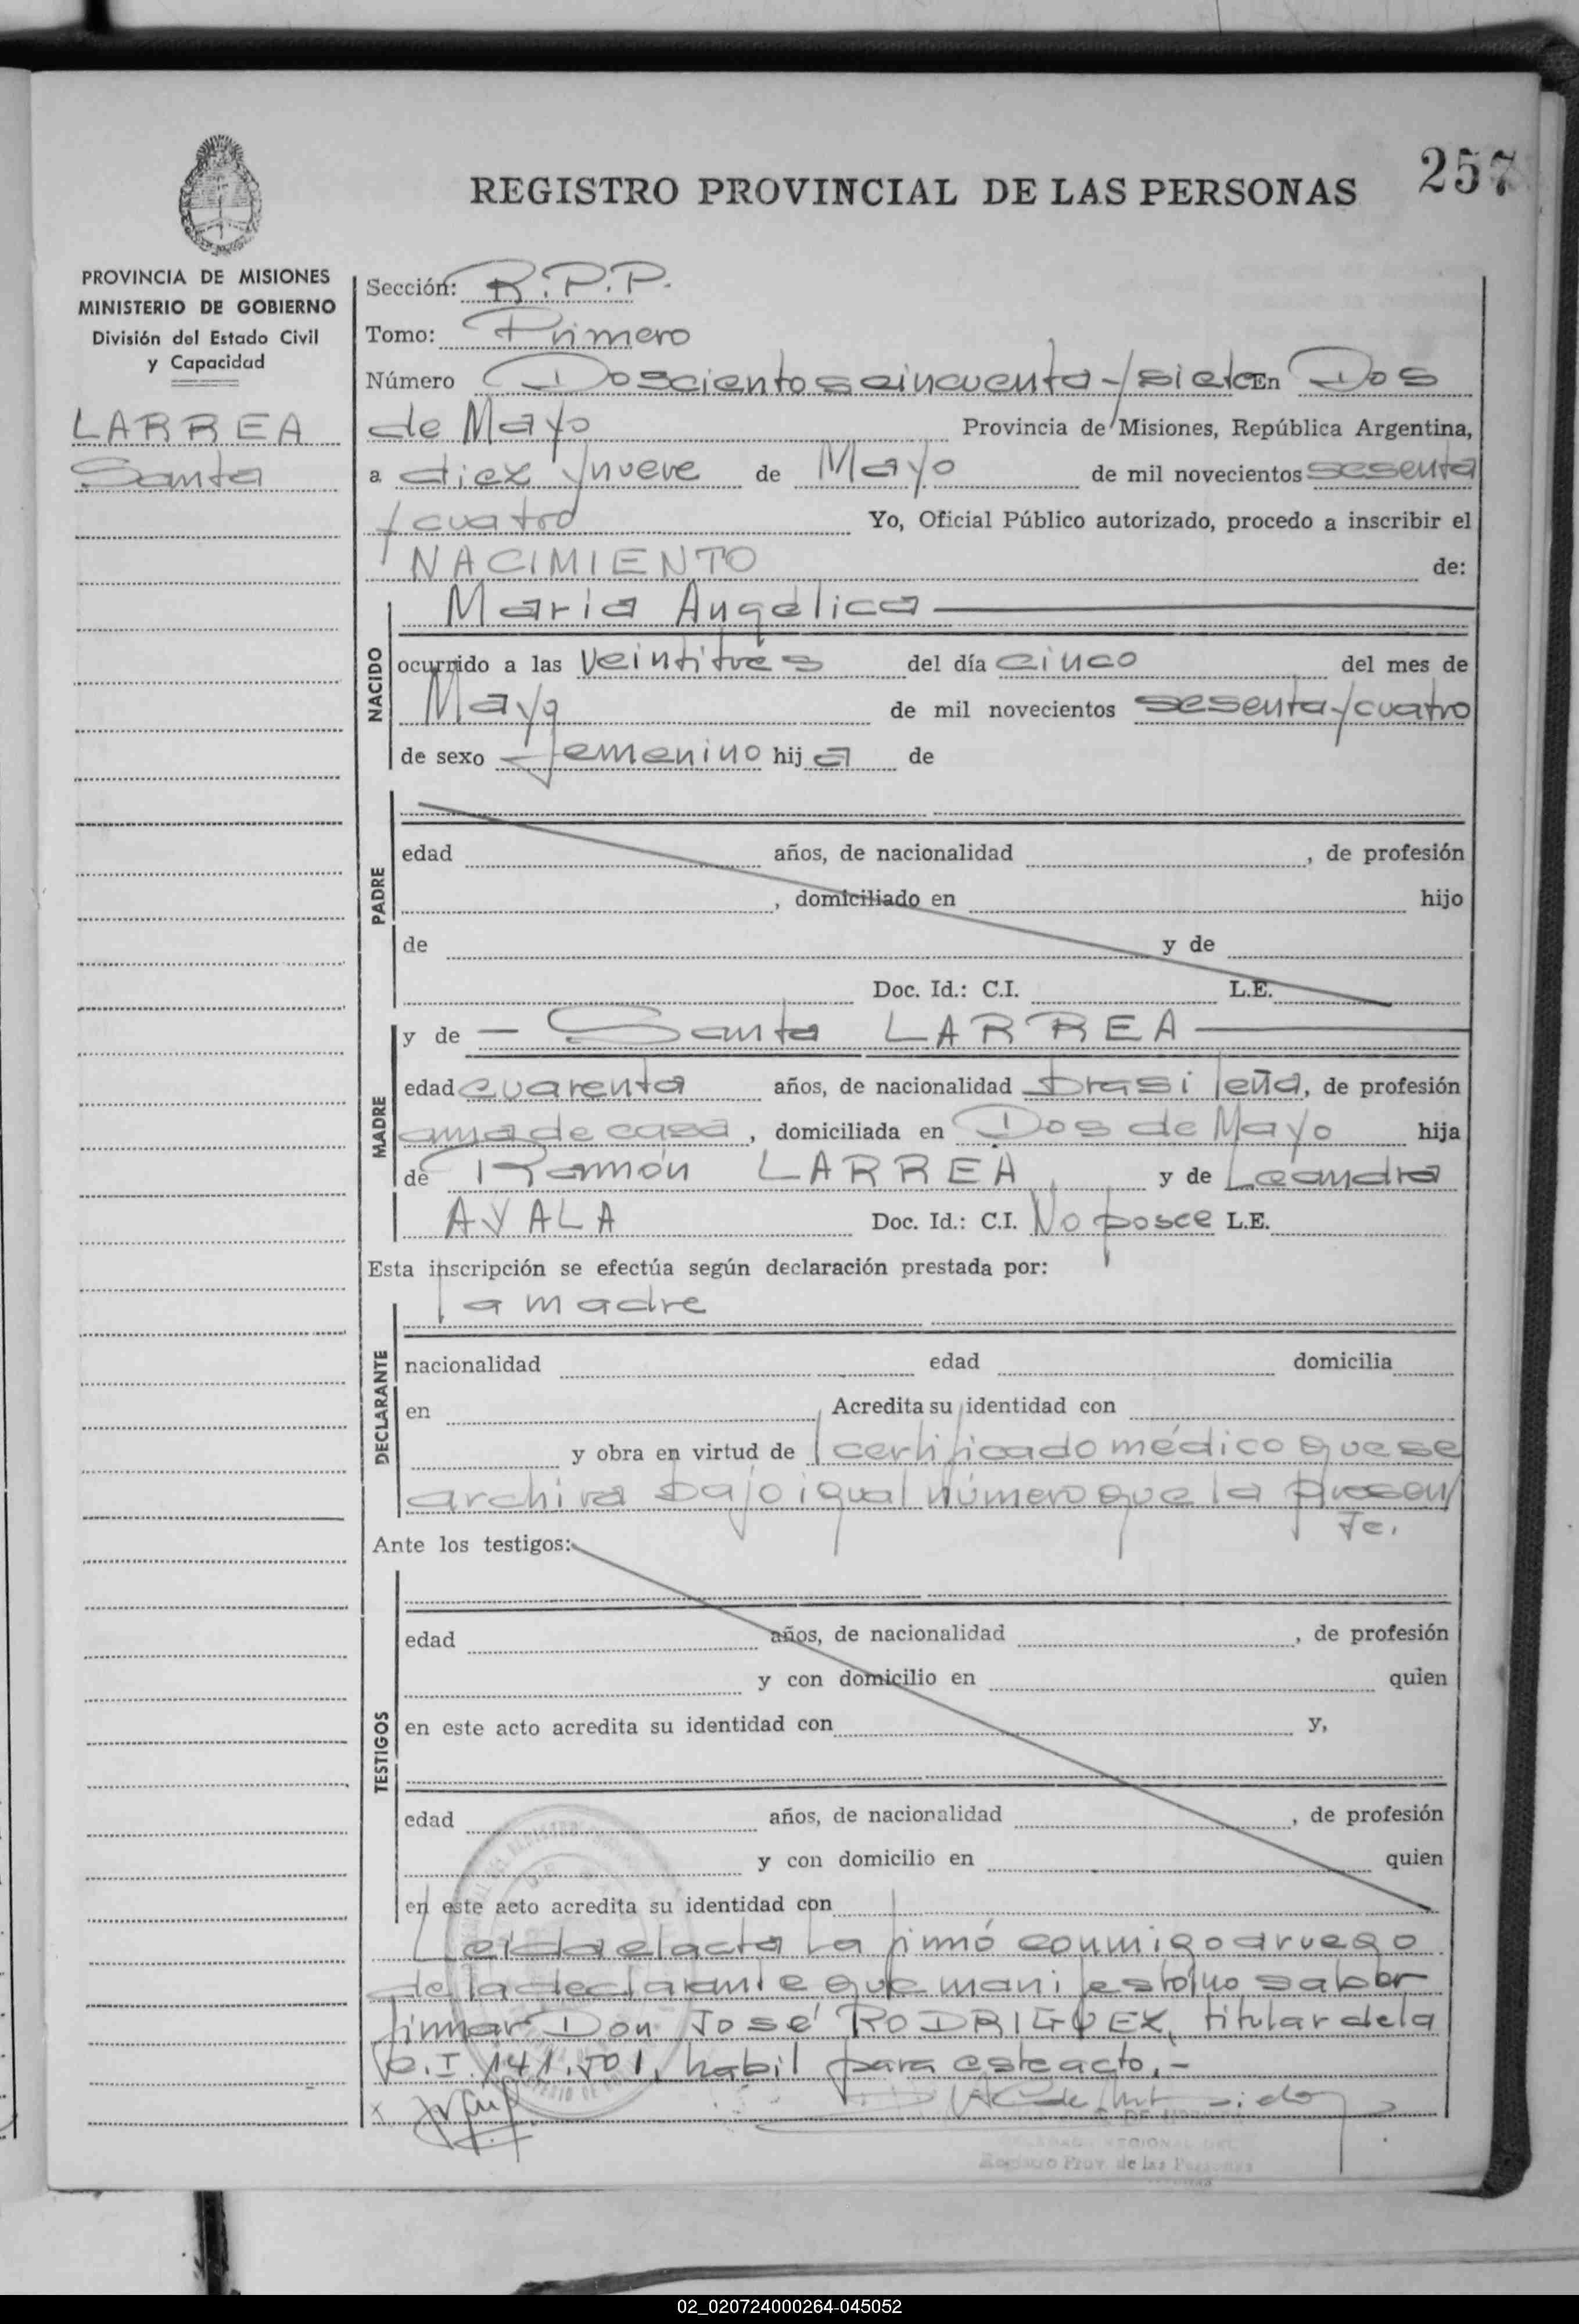 257
REGISTRO PROVINCIAL DE LAS PERSONAS
PROVINCIA DE MISIONES
MINISTERIO DE GOBIERNO
División del Estado Civil
y Capacidad
LARREA
Santa
Sección: R.P.P.
Tomo: Primero
Número Doscientos cincuenta y siete En Dos
de Mayo Provincia de Misiones, República Argentina,
a diez y nueve de Mayo de mil novecientos sesenta
y cuatro Yo, Oficial Público autorizado, procedo a inscribir el
NACIMIENTO de:
NACIDO
Maria Angélica
ocurrido a las veintitres del día cinco del mes de
Mayo de mil novecientos sesenta y cuatro
de sexo femenino hija de
PADRE
edad años, de nacionalidad , de profesión
, domiciliado en hijo
de y de
Doc. Id.: C.I. L.E.
MADRE
y de — Santa LARREA
edad cuarenta años, de nacionalidad brasileña, de profesión
ama de casa, domiciliada en Dos de Mayo hija
de Ramón LARREA y de Leandra
AYALA Doc. Id.: C.I. No posee L.E.
Esta inscripción se efectúa según declaración prestada por:
DECLARANTE
la madre
nacionalidad edad domicilia
en Acredita su identidad con
y obra en virtud de certificado médico que se
archiva bajo igual número que la presen
te.
Ante los testigos:
TESTIGOS
edad años, de nacionalidad , de profesión
y con domicilio en quien
en este acto acredita su identidad con y,
edad años, de nacionalidad , de profesión
y con domicilio en quien
en este acto acredita su identidad con
Leida el acta la firmó conmigo a ruego
de la declarante que manifestó no saber
firmar Don José RODRIGUEZ, titular de la
C.I. 141.501, habil para este acto.-
Registro Prov. de las Personas
02_020724000264-045052